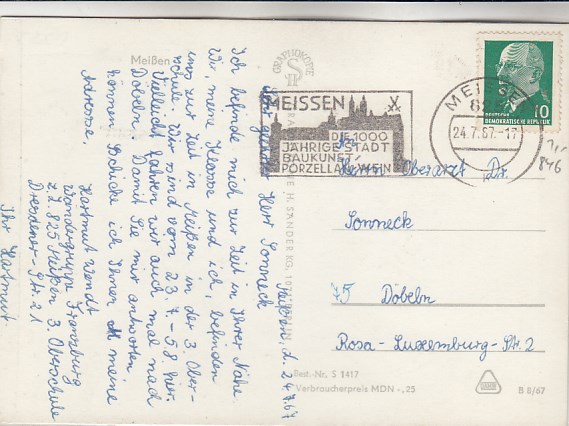 Meißen
GRAPHOKOPIE
H. SANDER KG,
Meißen, d. 24.7.67
Sehr geehrter Herr Sonneck
Ich befinde mich zur Zeit in Ihrer Nähe
Wir, meine Klasse und ich, befinden
uns zur Zeit in Meißen in der 3. Ober-
schule. Wir sind vom 23.7.-5.8. hier.
Vielleicht fahren wir auch mal nach
Döbeln. Damit Sie mir antworten
können schicke ich Ihnen meine
Adresse.
Hartmut Wendt
Wandergruppe
z.Z. 825 Meißen 3. Oberschule
Dresdener-Str. 21
Ihr Hartmut.
MEISSEN
DIE 1000
JÄHRIGE STADT
BAUKUNST
PORZELLAN WEIN
MEISSEN
24.7.67.-17
10
DEUTSCHE
DEMOKRATISCHE REPUBLIK
846
Herrn Oberarzt Dr.
Sonneck
75 Döbeln
Rosa-Luxemburg-Str. 2
Best.-Nr. S 1417
Verbraucherpreis MDN -,25
B 8/67